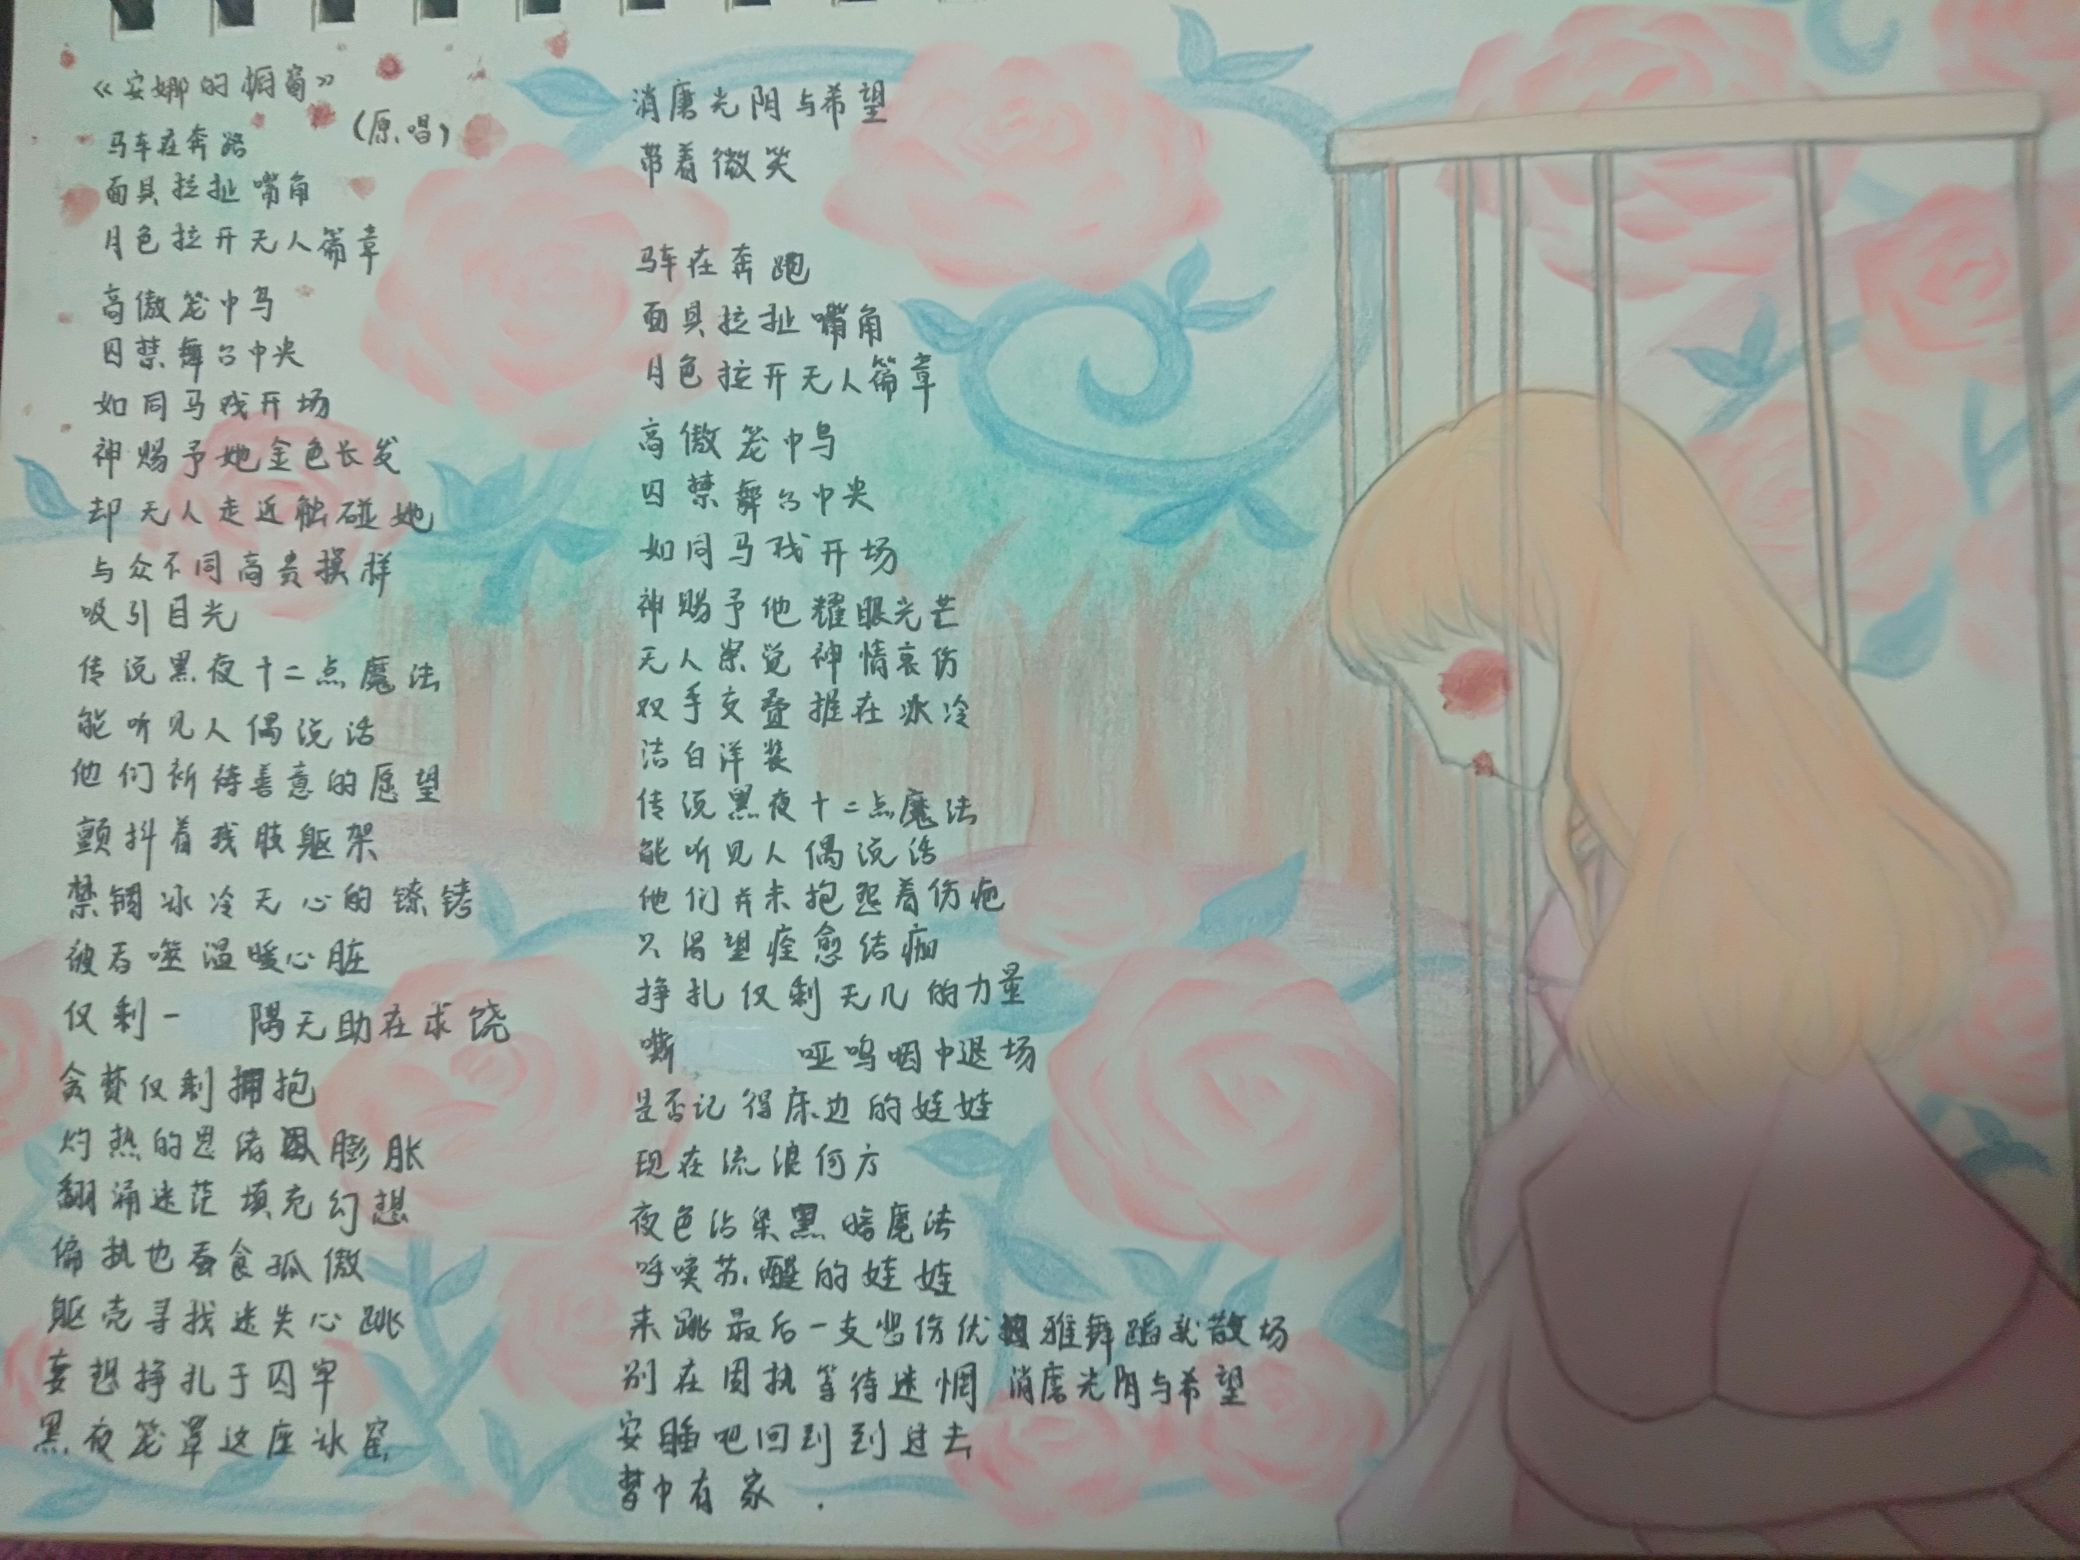 《安娜的橱窗》
(原唱)
马车在奔跑
面具拉扯嘴角
月色拉开无人篇章
高傲笼中鸟
囚禁舞台中央
如同马戏开场
神赐予她金色长发
却无人走近触碰她
与众不同高贵模样
吸引目光
传说黑夜十二点魔法
能听见人偶说话
他们祈待善意的愿望
颤抖着我肢躯架
禁锢冰冷无心的镣铐
被吞噬温暖心脏
仅剩一隅无助在求饶
贪婪仅剩拥抱
灼热的思绪膨胀
翻涌迷茫填充幻想
偏执也蚕食孤傲
躯壳寻找迷失心跳
妄想挣扎于囚牢
黑夜笼罩这座冰窖
消磨光阴与希望
带着微笑
马车在奔跑
面具拉扯嘴角
月色拉开无人篇章
高傲笼中鸟
囚禁舞台中央
如同马戏开场
神赐予他耀眼光芒
无人察觉神情哀伤
双手交叠握在冰冷
洁白洋装
传说黑夜十二点魔法
能听见人偶说话
他们并未抱怨着伤疤
只渴望痊愈结痂
挣扎仅剩无几的力量
嘶哑呜咽中退场
是否记得床边的娃娃
现在流浪何方
夜色沾染黑暗魔法
呼唤苏醒的娃娃
来跳最后一支悲伤优雅舞蹈就散场
别在固执等待迷惘 消磨光阴与希望
安睡吧回到到过去
梦中有家.